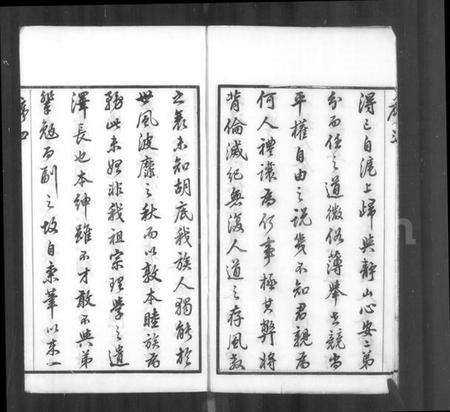 得已自滬上歸與靜山心安二弟
分而任之道微俗薄舉世競尚
平權自由之說幾不知君親為
何人禮讓為何事極其弊將
背倫滅紀無復人道之存風教
之衰未知胡底我族人獨能於
世風波靡之秋而以敦本睦族為
務此未始非我祖宗理學之遺
澤長也本紳雖不才敢不與弟
輩勉而副之故自秉筆以來一
序四